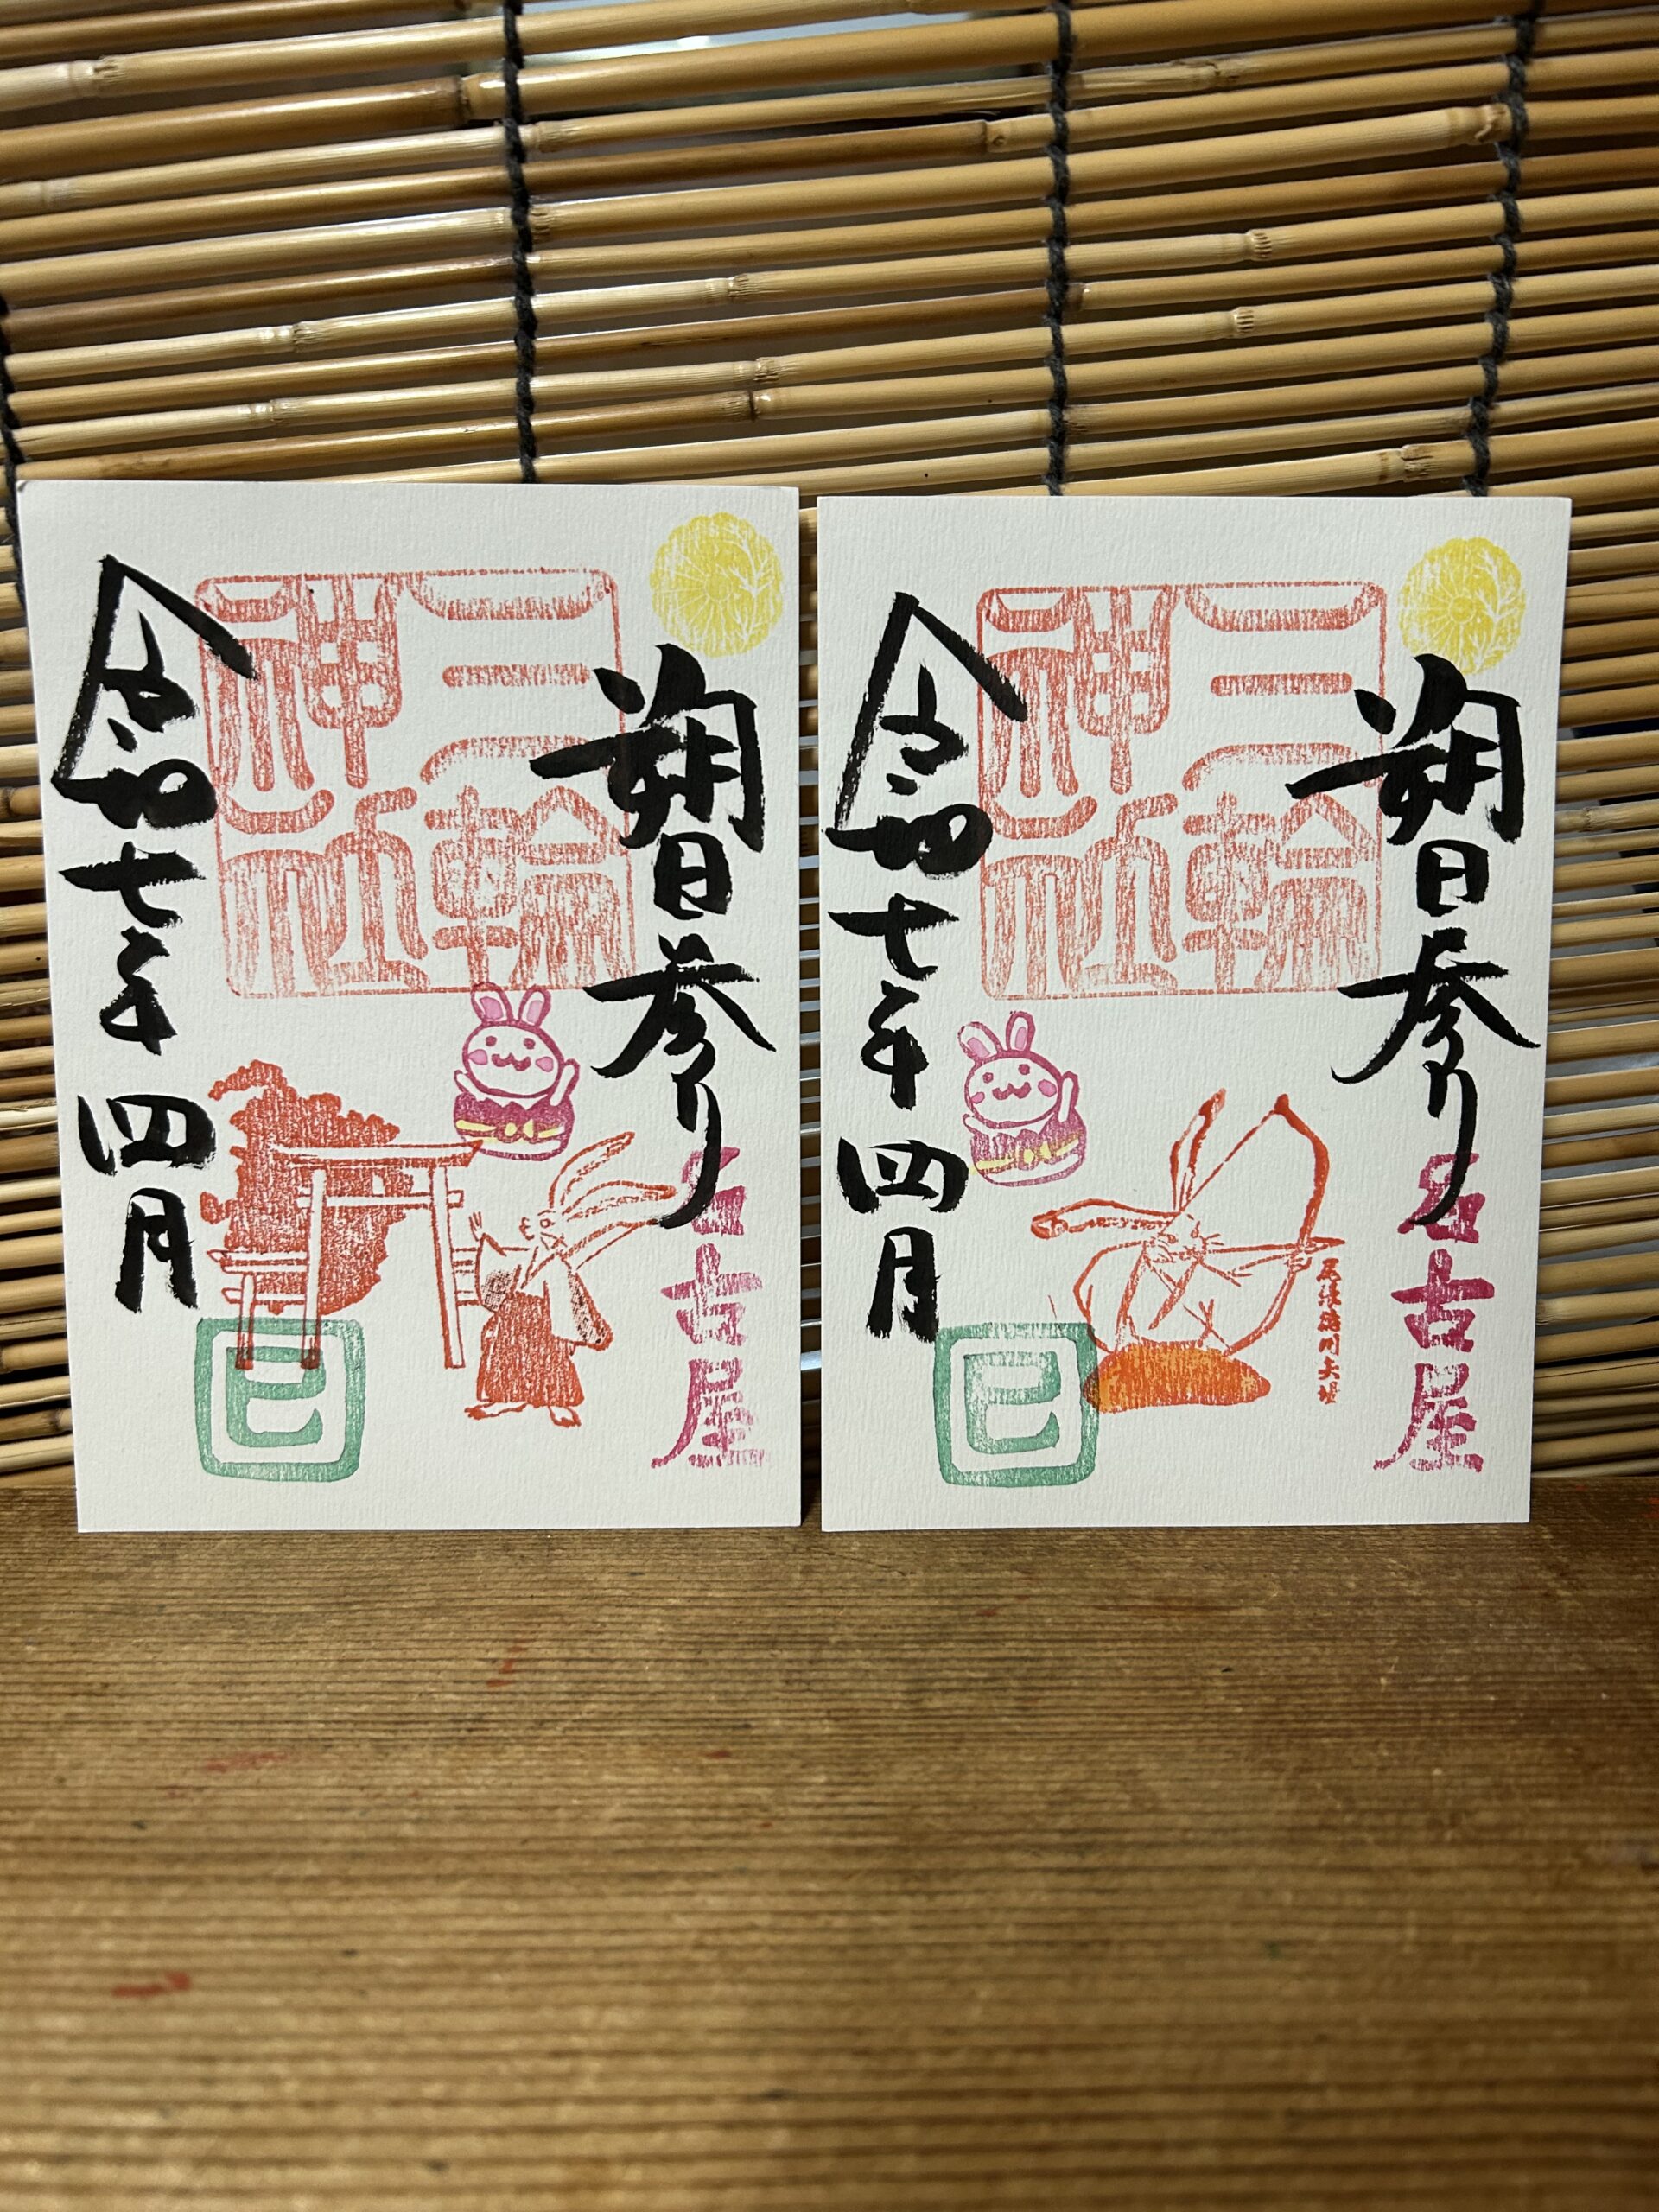 朔日参り
三輪神社
名古屋
令和七年 四月
巳
朔日参り
三輪神社
名古屋
尾張徳川矢場
令和七年 四月
巳